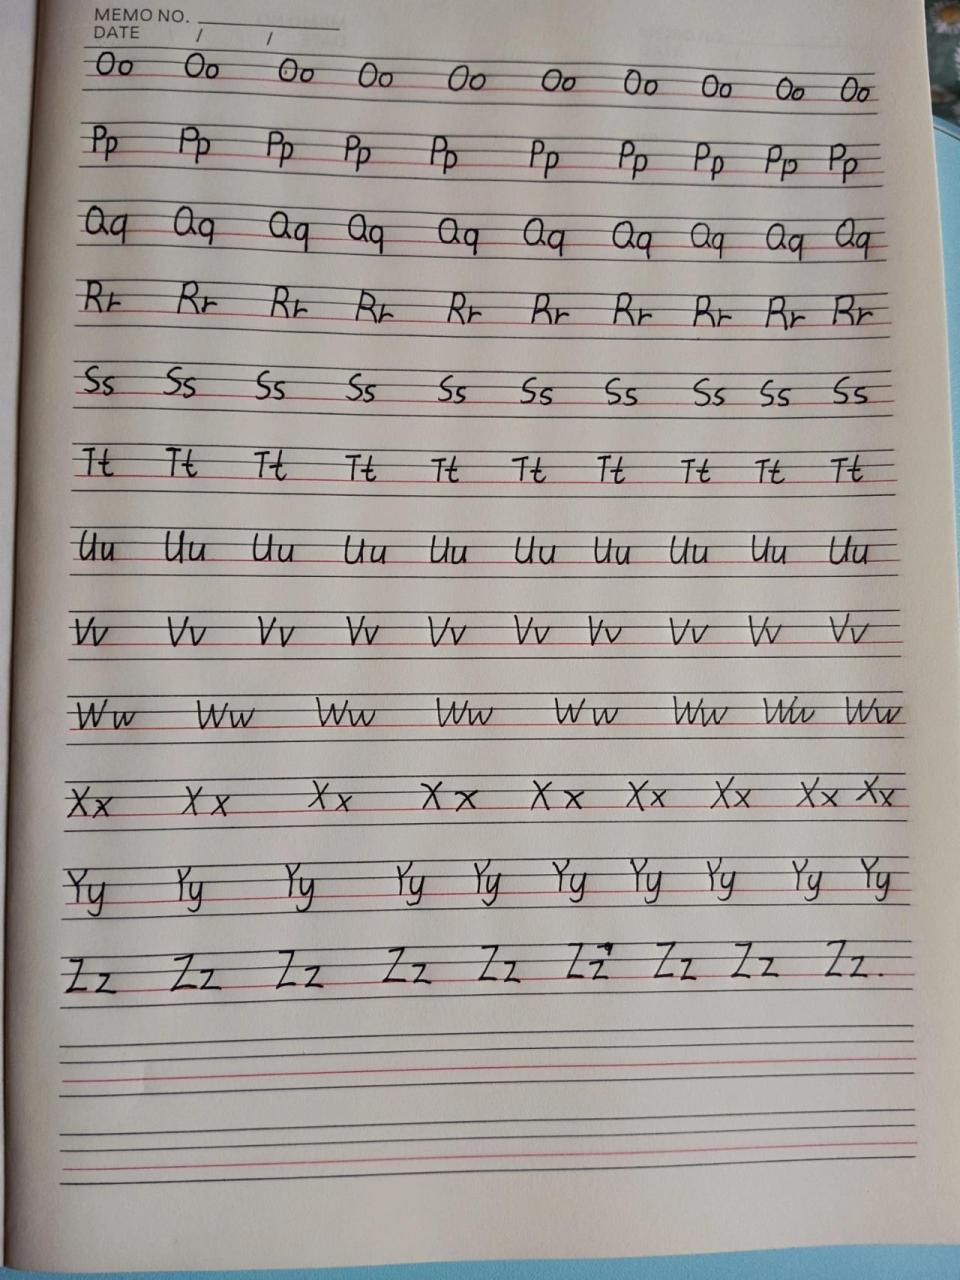 MEMO NO.
DATE / /
Oo Oo Oo Oo Oo Oo Oo Oo Oo Oo
Pp Pp Pp Pp Pp Pp Pp Pp Pp Pp
Qq Qq Qq Qq Qq Qq Qq Qq Qq Qq
Rr Rr Rr Rr Rr Rr Rr Rr Rr Rr
Ss Ss Ss Ss Ss Ss Ss Ss Ss Ss
Tt Tt Tt Tt Tt Tt Tt Tt Tt Tt
Uu Uu Uu Uu Uu Uu Uu Uu Uu Uu
Vv Vv Vv Vv Vv Vv Vv Vv Vv Vv
Ww Ww Ww Ww Ww Ww Ww Ww
Xx Xx Xx Xx Xx Xx Xx Xx Xx
Yy Yy Yy Yy Yy Yy Yy Yy Yy Yy
Zz Zz Zz Zz Zz Zz Zz Zz Zz.